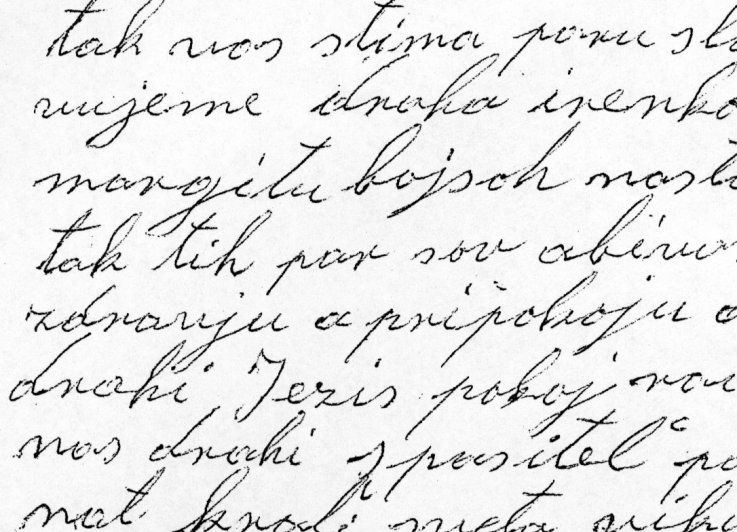 tak vas stima paru slo
vujeme draha irenko
margitu bojsoh nasta
tak tih par sov abi
zdravju a pripokoju
drahi Jezis pokoj
nas drahi spasitel po
nat